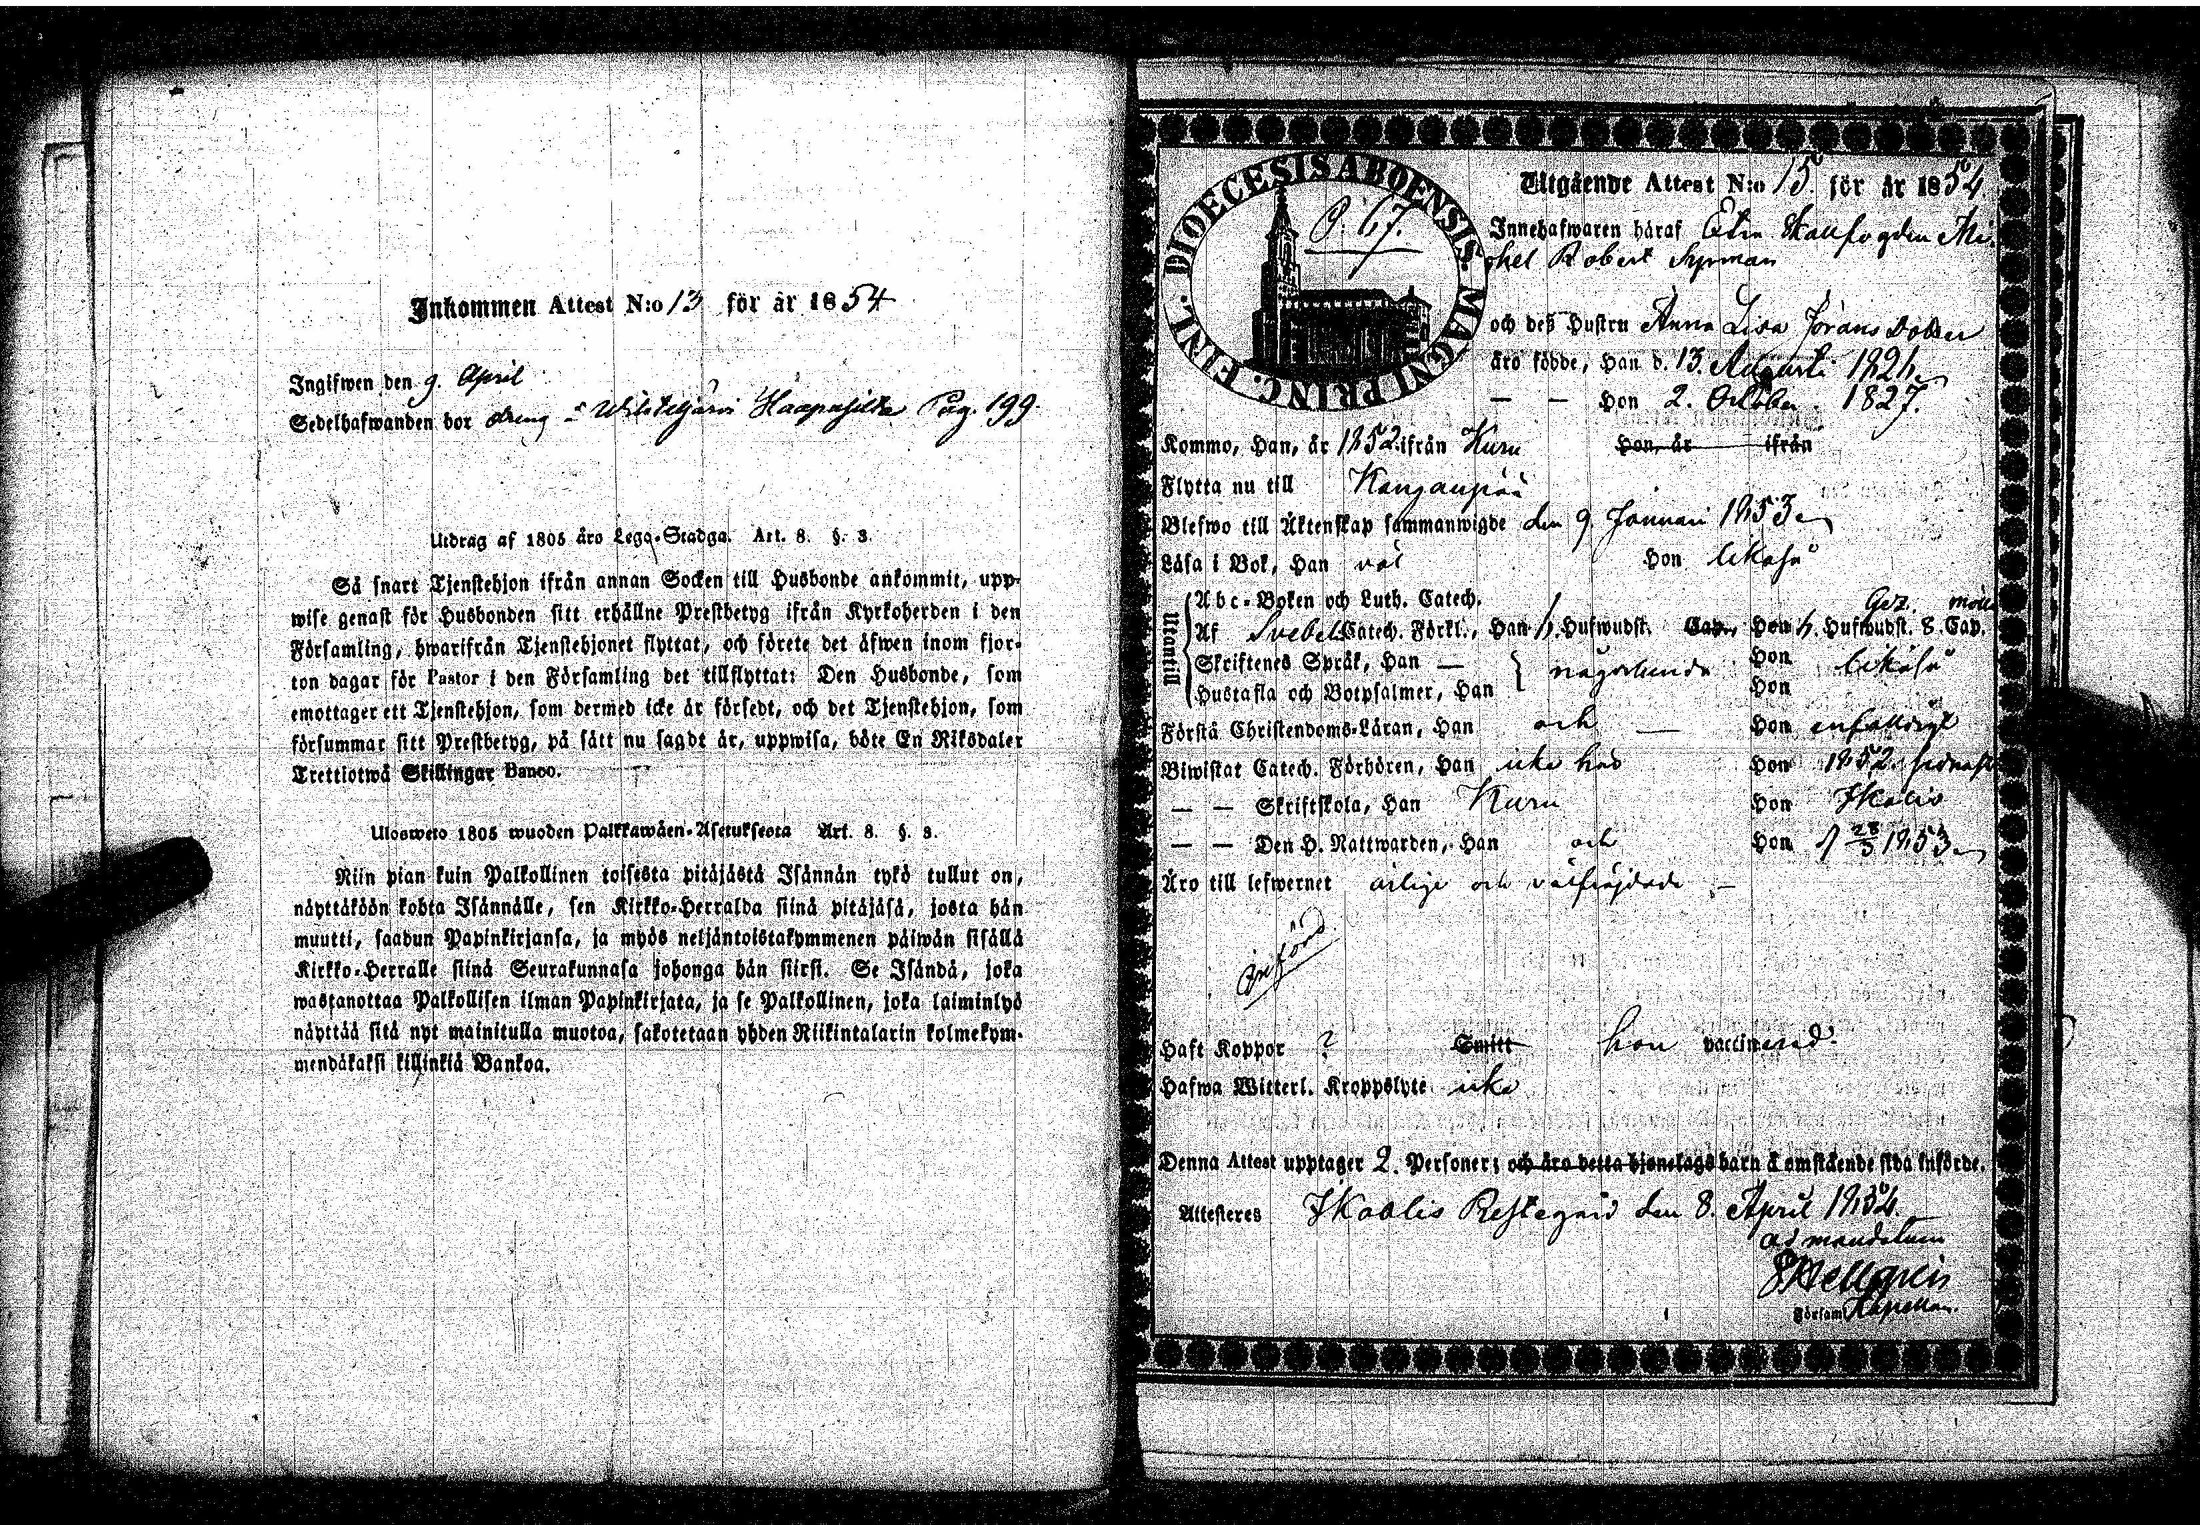 Inkommen Attest N:o 13 för år 1854
Ingifwen den 9. April
Sedelhafwanden bor dreng Haapasilta Pag. 199.
Utdrag af 1805 års Lego-Stadga. Art. 8. §. 3.
Så snart Tjenstehjon ifrån annan Socken till Husbonde ankommit, upp-
wise genast för Husbonden sitt erhållne Prestbetyg ifrån Kyrkoherden i den
Församling, hwarifrån Tjenstehjonet flyttat, och förete det äfwen inom fjor-
ton dagar för Pastor i den Församling det tillflyttat: Den Husbonde, som
emottager ett Tjenstehjon, som dermed icke är försedt, och det Tjenstehjon, som
försummar sitt Prestbetyg, på sätt nu sagdt är, uppwisa, böte En Riksdaler
Trettiotwå Skillingar Banco.
Ulosweto 1805 wuoden Palkkawäen-Asetuksesta Art. 8. §. 3.
Niin pian kuin Palkollinen toisesta pitäjästä Isännän tykö tullut on,
näyttäköön kohta Isännälle, sen Kirkko-Herralda siinä pitäjäsä, josta hän
muutti, saadun Papinkirjansa, ja myös neljäntoistakymmenen päiwän sisällä
Kirkko-Herralle siinä Seurakunnasa johonga hän siirsi. Se Isändä, joka
wastanottaa Palkollisen ilman Papinkirjata, ja se Palkollinen, joka laiminlyö
näyttää sitä nyt mainitulla muotoa, sakotetaan yhden Riikintalarin kolmekym-
mendäkaksi killinkiä Bankoa.
DIOECESIS ABOENSIS. MAGNI PRINC. FINL.
P. 67.
Utgående Attest N:o 15. för år 1854
Innehafwaren häraf Mi-
chel Robert Syrman
och deß Hustru Anna Lisa Jörans Dotter
äro födde, Han d. 13. Augusti 1821.
— — Hon 2. October 1827.
Kommo, Han, år 1852 ifrån Kuru Hon, år ifrån
Flytta nu till Kangaupää
Blefwo till Äktenskap sammanwigde den 9. Januari 1853
Läsa i Bok, Han väl Hon likaså
Utantill
Abc-Boken och Luth. Catech.
Af Svebel. Catech. Förkl., Han h. Hufwudst. Cap. Hon h. Hufwudst. 8. Cap.
Skriftenes Språk, Han — någorlunda Hon likaså
Hustafla och Botpsalmer, Han Hon
Förstå Christendoms-Läran, Han och — Hon enfaldigt
Biwistat Catech. Förhören, Han icke här Hon 1852. sednast
— — Skriftskola, Han Kuru Hon Ikalis
— — Den H. Nattwarden, Han och Hon 28/3 1853
Äro till lefwernet ärlige och välfräjdade —
införd.
Haft Koppor ? Smitt hon vaccinerad.
Hafwa Witterl. Kroppslyte icke
Denna Attest upptager 2. Personer; och äro detta hjonelags barn å omstående sida införde.
Attesteres Ikalis Prestegård den 8. April 1854.
ad mandatum
Hellgrén
Församl. Kapellan.